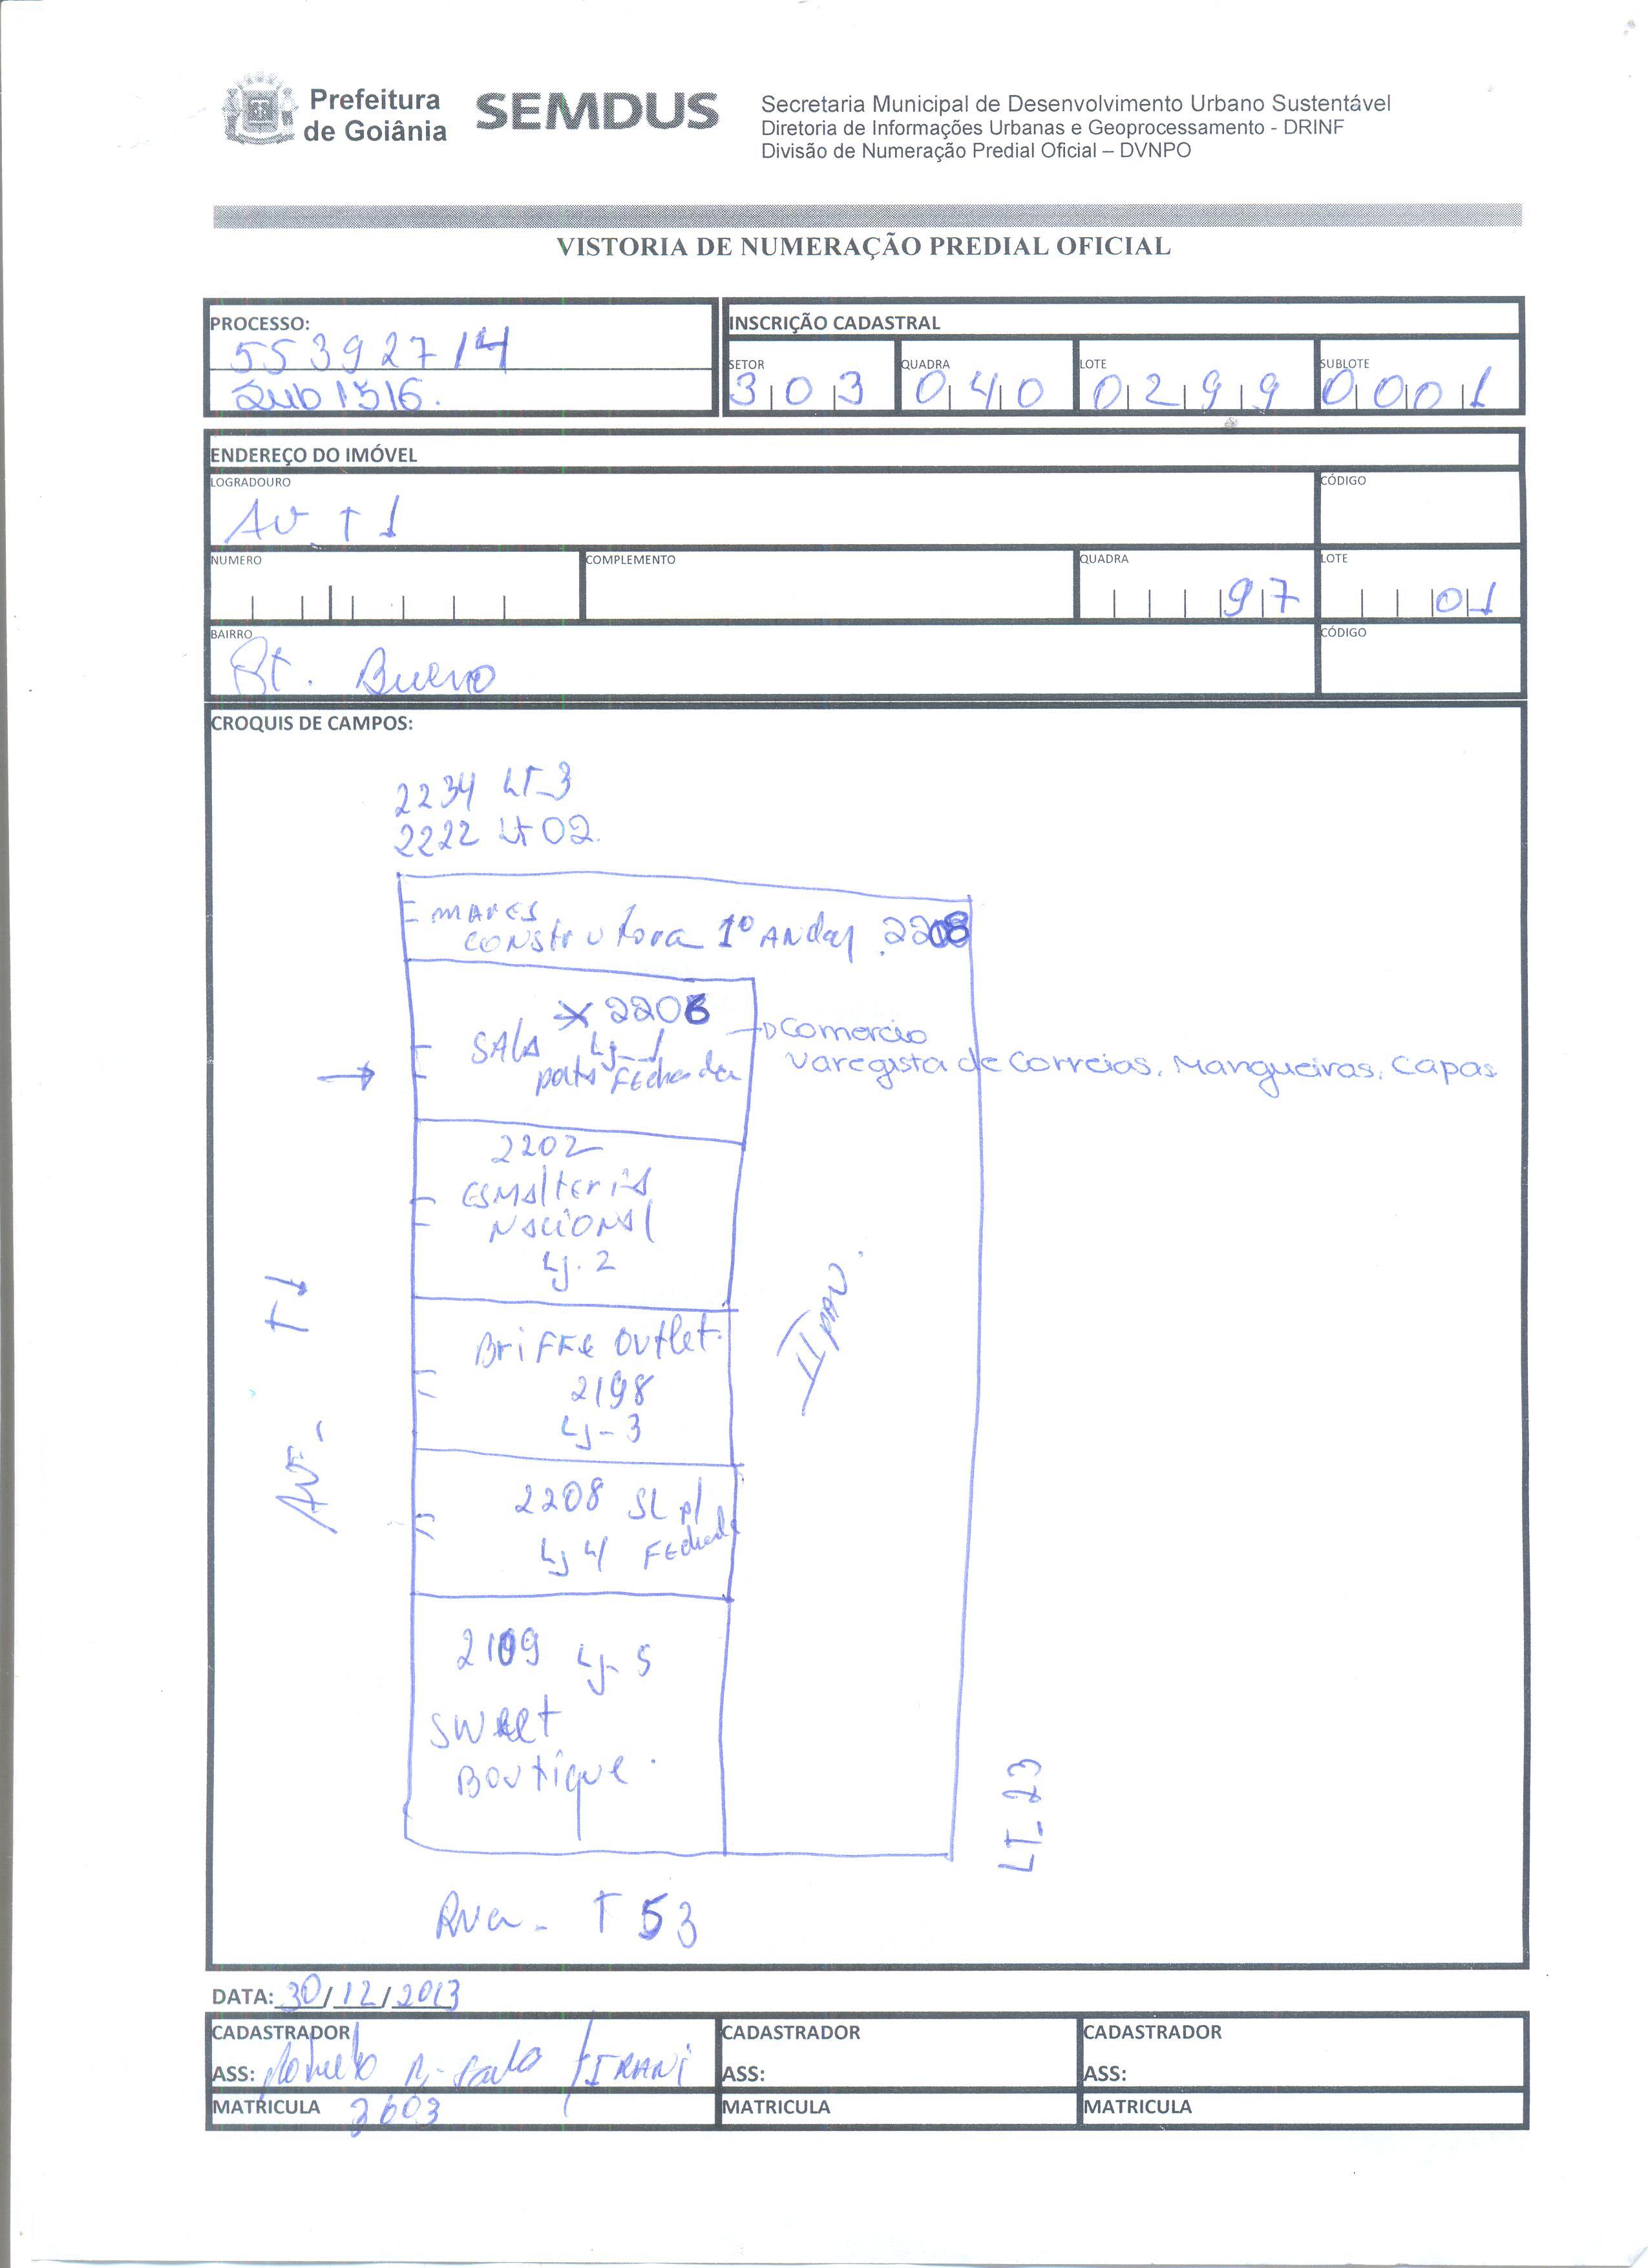 Prefeitura
de Goiânia
SEMDUS
Secretaria Municipal de Desenvolvimento Urbano Sustentável
Diretoria de Informações Urbanas e Geoprocessamento - DRINF
Divisão de Numeração Predial Oficial – DVNPO
VISTORIA DE NUMERAÇÃO PREDIAL OFICIAL
PROCESSO:
5539271/4
1516.
INSCRIÇÃO CADASTRAL
SETOR QUADRA LOTE SUBLOTE
303 040 0299 0001
ENDEREÇO DO IMÓVEL
LOGRADOURO CÓDIGO
AV T 1
NUMERO COMPLEMENTO QUADRA LOTE
97 01
BAIRRO CÓDIGO
St. Bueno
CROQUIS DE CAMPOS:
2234 LT_3
2222 Lt 02.
MARES
CONStrutora 1º ANdar 2208
X 2206
SALA Lj_1
porta FEchada
Comercio
Varegista de Correias, Mangueiras, Capas
2202
ESMAlteriA
NACIONAl
Lj. 2
BriFFe Outlet
2198
Lj-3
2208 SL p/
Lj 4 FEchada
2109 Lj-5
SWeet
Boutique.
II pav.
AV. T1
LT_23
Rua - T 53
DATA: 30/12/2013
CADASTRADOR CADASTRADOR CADASTRADOR
ASS: /IRANI ASS: ASS:
MATRICULA 2603 MATRICULA MATRICULA